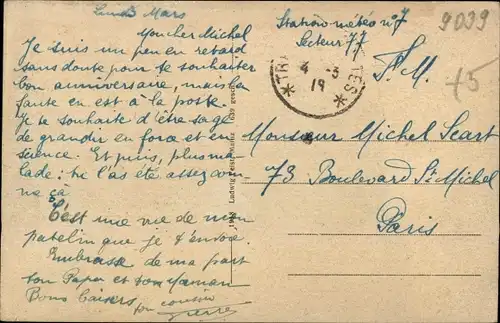 Lundi Mars
Mon cher Michel
Je suis un peu en retard
sans doute pour te souhaiter
bon anniversaire, mais la
faute en est à la poste.
Je te souhaite d'être sage
de grandir en force et en
science. Et puis, plus ma-
lade: tu l'as été assez com-
me çà.
C'est une vie de mon
patelin que je t'envoie.
Embrasse de ma part
ton Papa et ton Maman
Bons baisers
ton cousin
Pierre
Station météo no 7
Secteur 77
F.M.
9039
15
4 -3
19
Monsieur Michel Seart
73 Boulevard St Michel
Paris